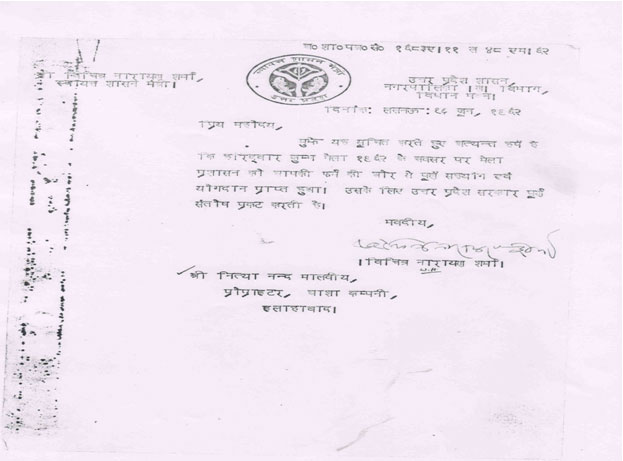 अ० शा० प० सं० १६८३ए।११ त ४८ एम।६२
श्री विचित्र नारायण शर्मा,
स्वायत्त शासन मंत्री।
स्वायत्त शासन मंत्री
उत्तर प्रदेश
उत्तर प्रदेश शासन,
नगरपालिका ।ब। विभाग,
विधान भवन।
दिनांक: लखनऊ: १८ जून, १९६२
प्रिय महोदय,
मुझे यह सूचित करते हुए अत्यन्त हर्ष है
कि हरिद्वार कुम्भ मेला १९६२ के अवसर पर मेला
प्रशासन को आपकी फर्म की ओर से पूर्ण सहयोग एवं
योगदान प्राप्त हुआ। उसके लिए उत्तर प्रदेश सरकार पूर्ण
संतोष प्रकट करती है।
भवदीय,
।विचित्र नारायण शर्मा।
श्री नित्या नन्द मालवीय,
प्रोप्राइटर, कम्पनी,
इलाहाबाद।